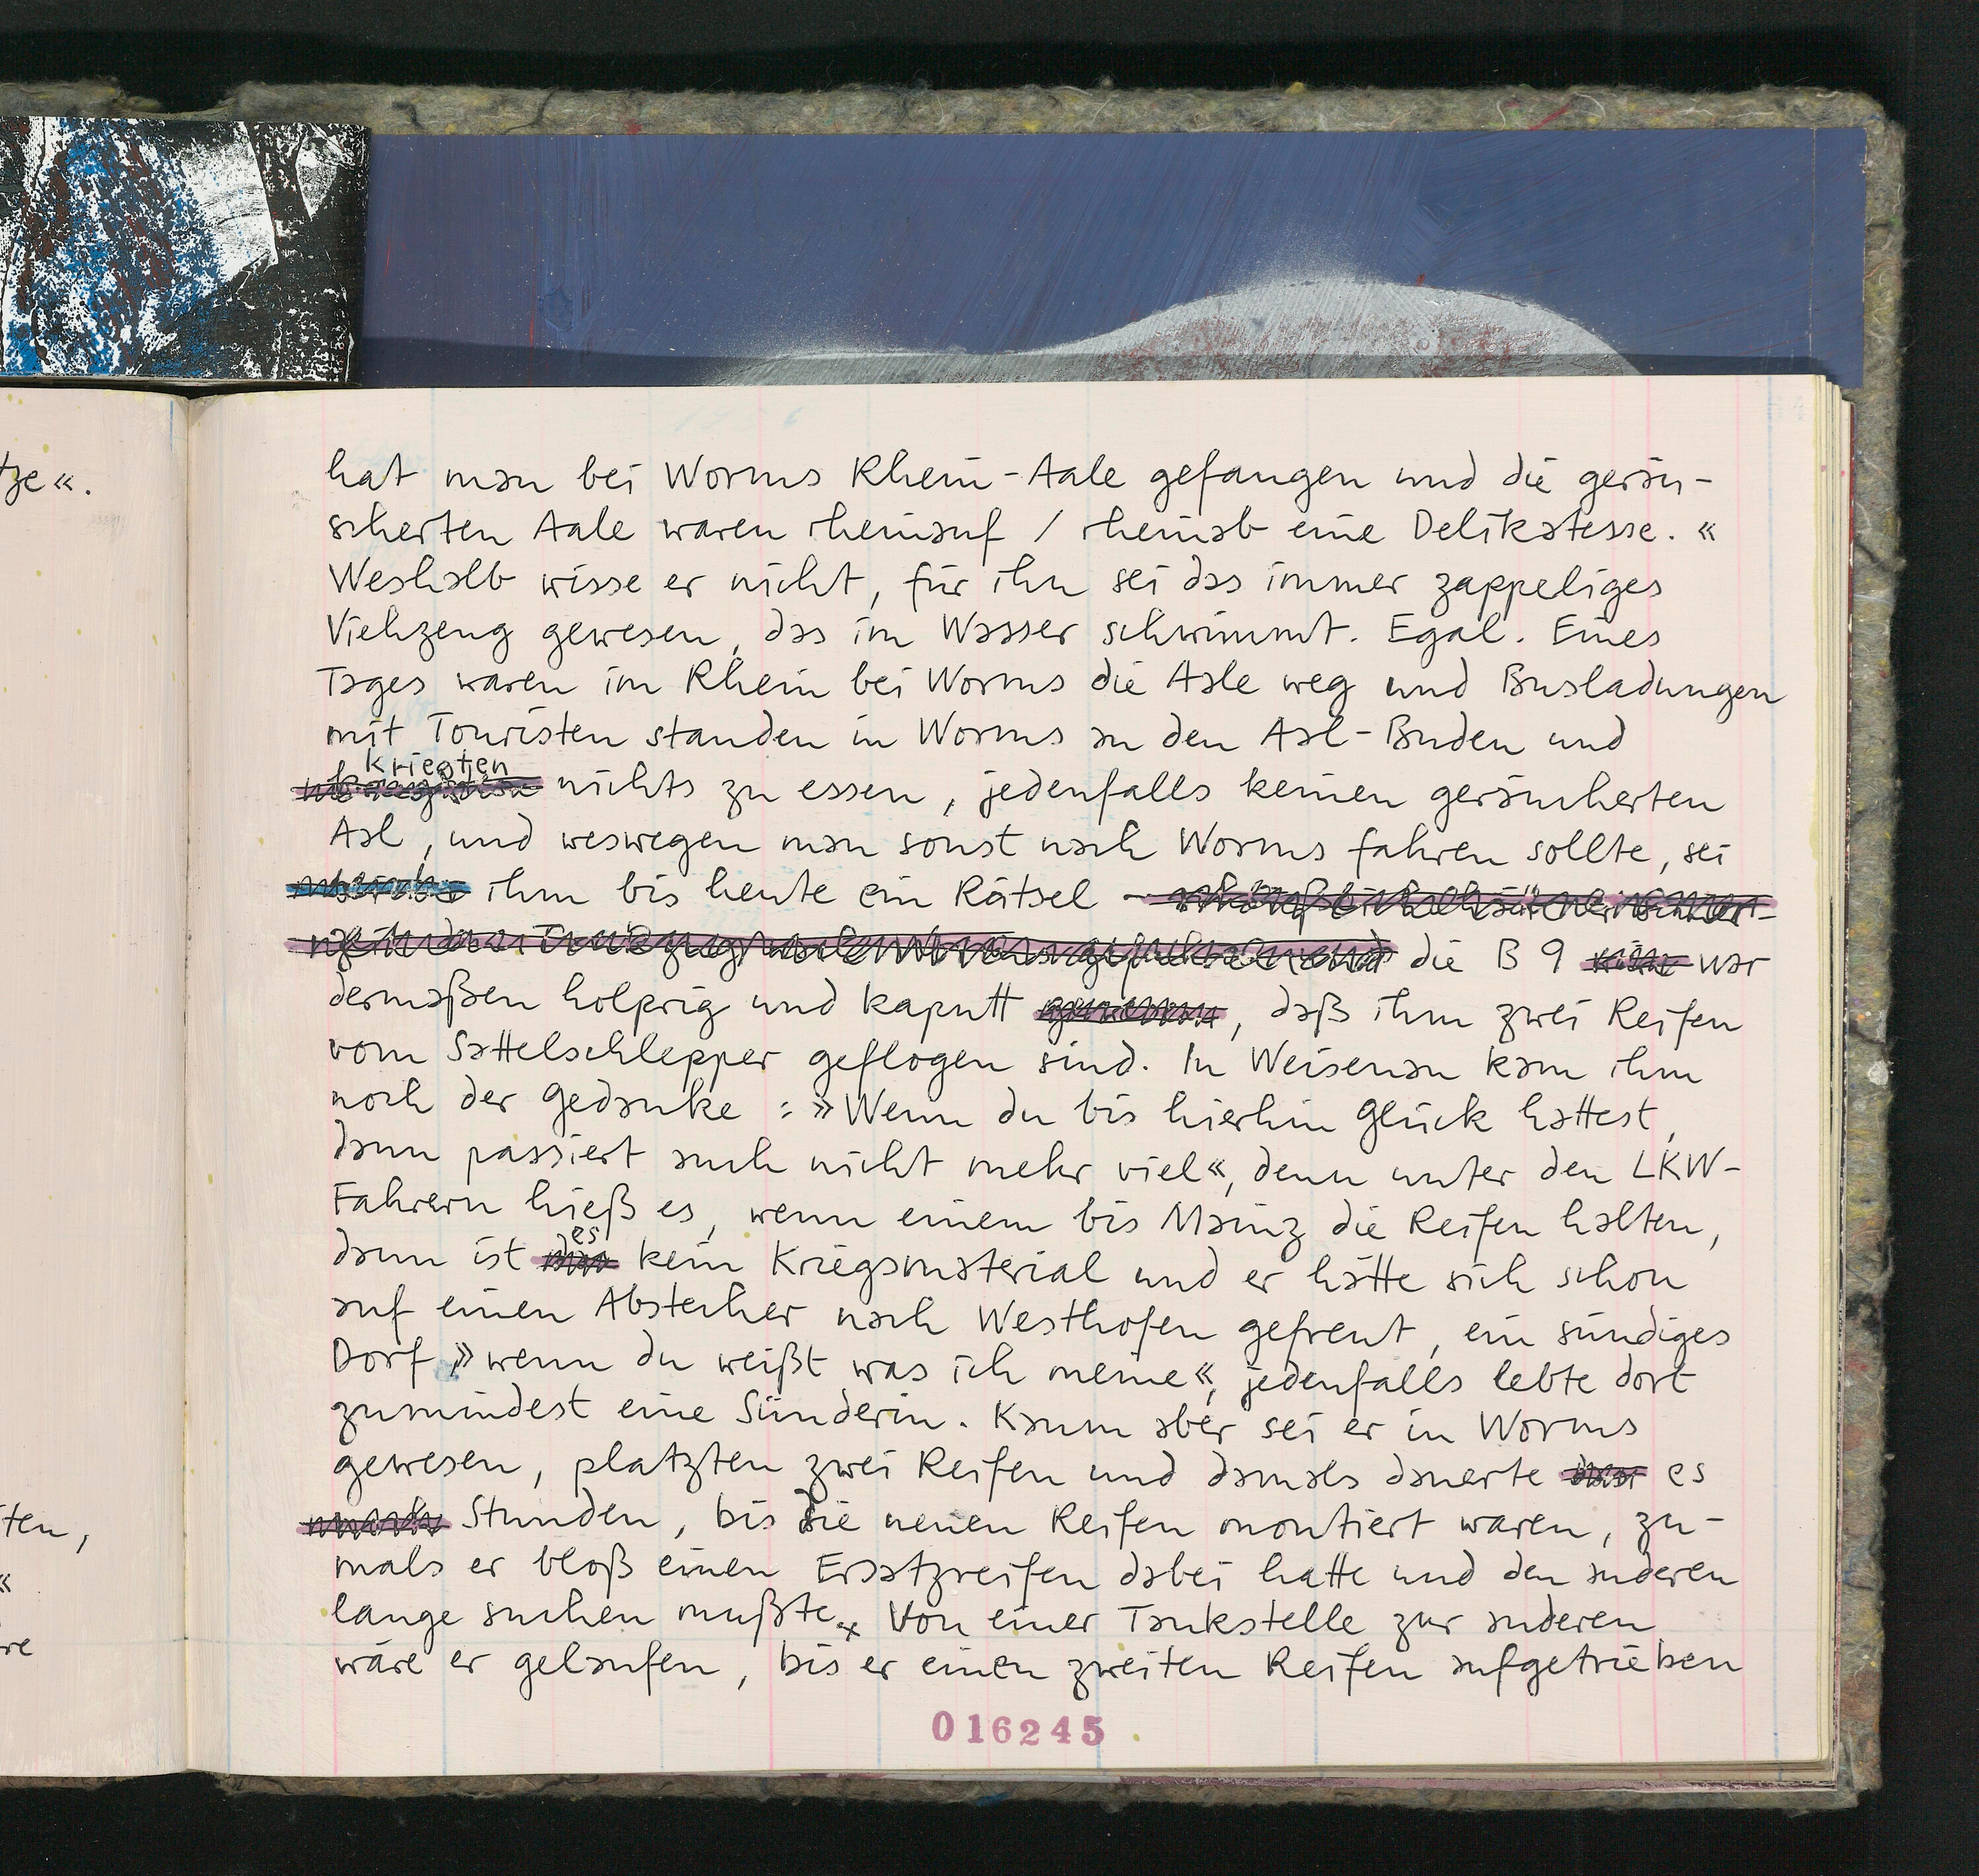 tze«.
ten,
«
re
hat man bei Worms Rhein-Aale gefangen und die geräu-
cherten Aale waren rheinauf / rheinab eine Delikatesse. «
Weshalb wisse er nicht, für ihn sei das immer zappeliges
Viehzeug gewesen, das im Wasser schwimmt. Egal. Eines
Tages waren im Rhein bei Worms die Aale weg und Busladungen
mit Touristen standen in Worms an den Aal-Buden und
kriegten
nichts zu essen, jedenfalls keinen geräucherten
Aal, und weswegen man sonst nach Worms fahren sollte, sei
ihm bis heute ein Rätsel –
die B 9 war
dermaßen holprig und kaputt, daß ihm zwei Reifen
vom Sattelschlepper geflogen sind. In Weisenau kam ihm
noch der Gedanke : »Wenn du bis hierhin Glück hattest,
dann passiert auch nicht mehr viel«, denn unter den LKW-
Fahrern hieß es, wenn einem bis Mainz die Reifen halten,
es
dann ist kein Kriegsmaterial und er hätte sich schon
auf einen Abstecher nach Westhofen gefreut, ein sündiges
Dorf, »wenn du weißt was ich meine«, jedenfalls lebte dort
zumindest eine Sünderin. Kaum aber sei er in Worms
gewesen, platzten zwei Reifen und damals dauerte es
Stunden, bis die neuen Reifen montiert waren, zu-
mals er bloß einen Ersatzreifen dabei hatte und den anderen
lange suchen mußte. x Von einer Tankstelle zur anderen
wäre er gelaufen, bis er einen zweiten Reifen aufgetrieben
016245